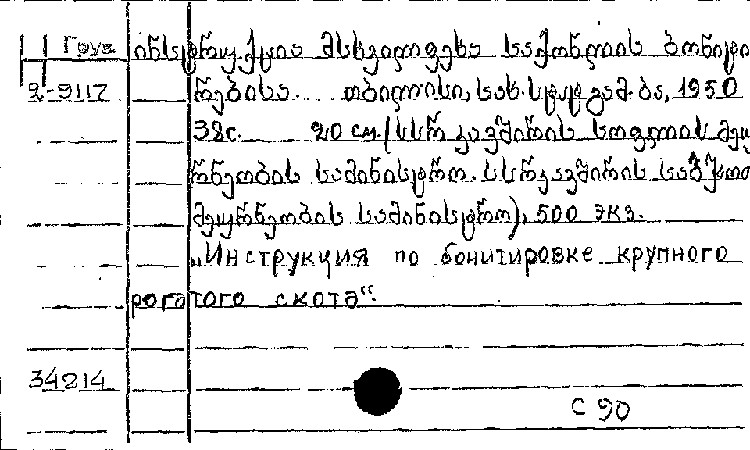 Груз ინსტრუქცია მსხვილფეხა საქონლის ბონიტი
2-9117 რებისა. თბილისი, სახ. სტატ გამ-ბა, 1950
38с. 20 см/სსრ კავშირის სოფლის მეუ
რნეობის სამინისტრო. სსრ კავშირის საბჭოთა
მეურნეობის სამინისტრო), 500 экз.
„Инструкция по бонитировке крупного
рогатого скота“.
34214
с 90